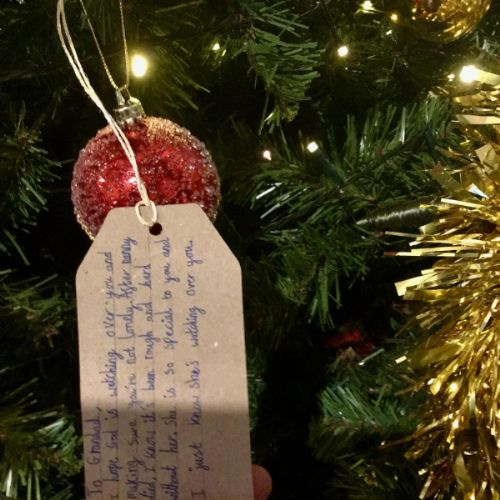 To Grandad,
I hope God is watching over you and
making sure you're not lonely. After nanny
died, I know it's been rough and hard
without her. She is so special to you and
I just know she's watching over you.